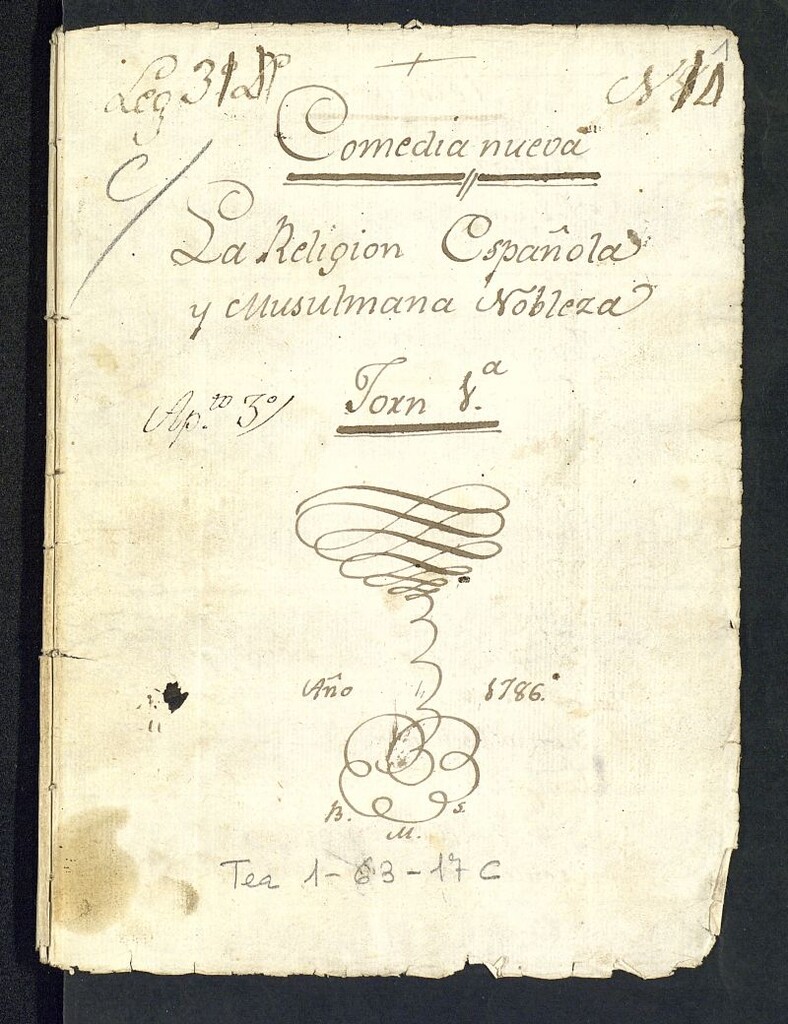 Leg 31
C
Comedia nueva
La Religion Española
y Musulmana Nobleza
Ap.to 3º
Jorn 1.a
Año 1786.
B. M. S.
Tea 1-63-17 C